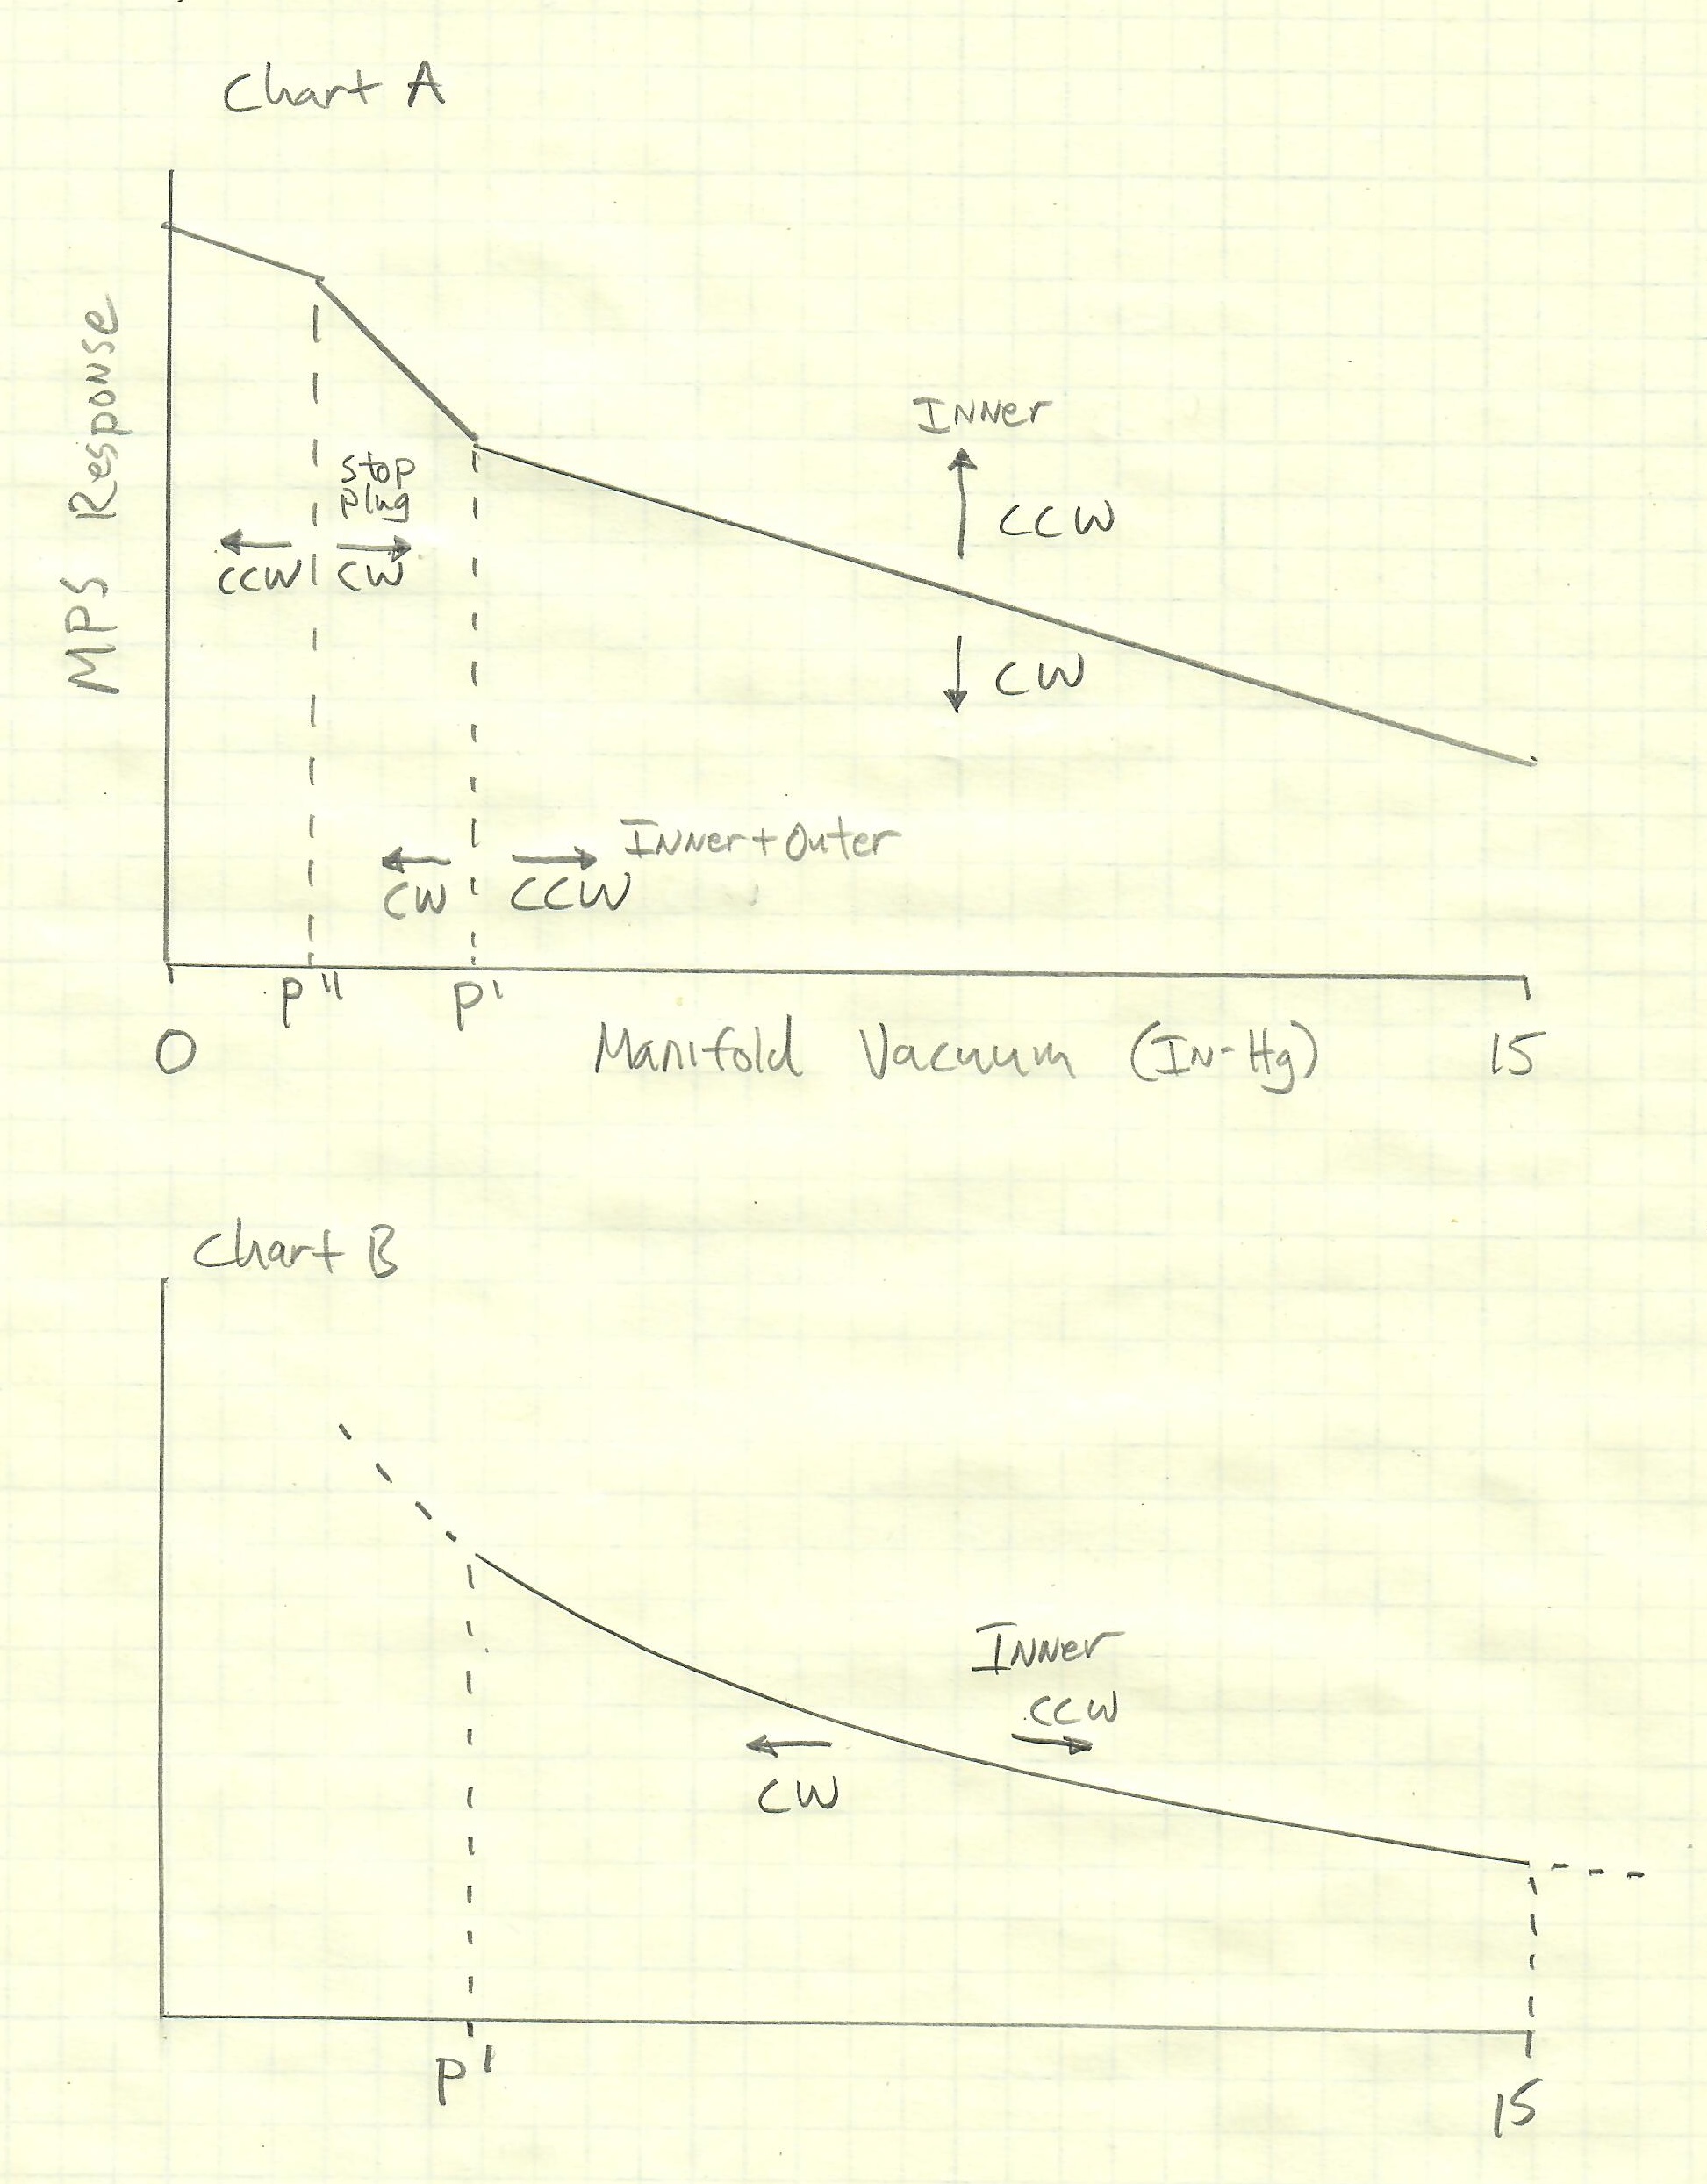 Chart A
MPS Response
Inner
CCW
CW
Stop
Plug
CCW
CW
Inner + Outer
CW
CCW
P"
P'
0
Manifold Vacuum (In-Hg)
15
Chart B
Inner
CCW
CW
P'
15